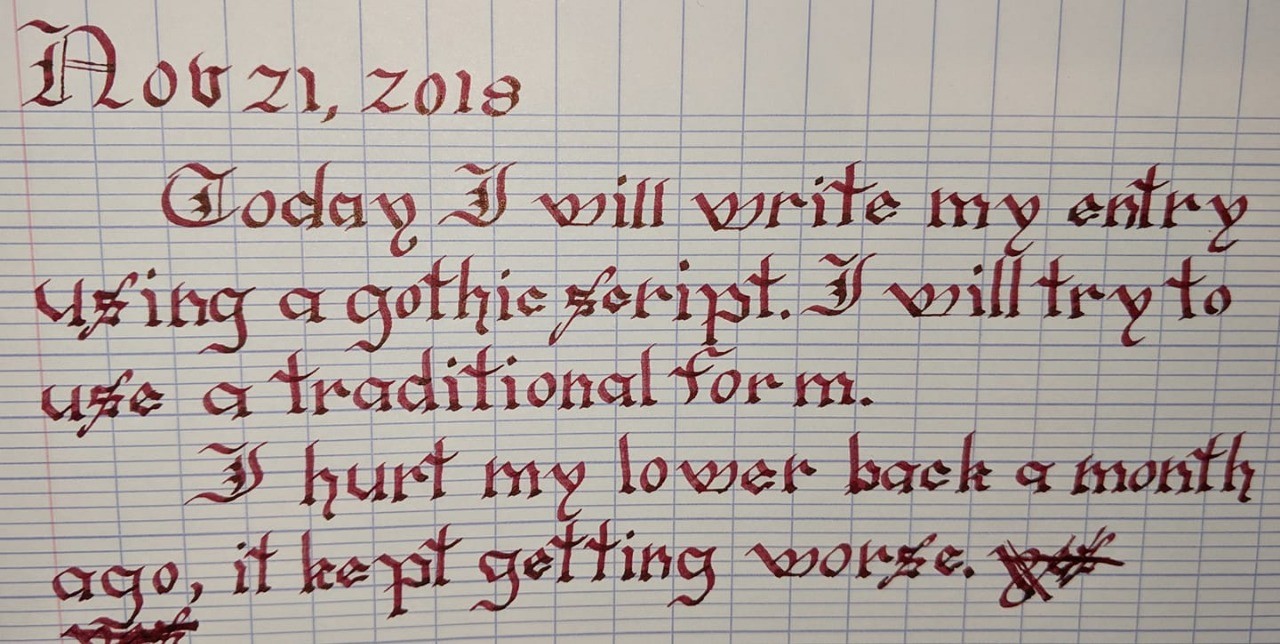 Nov 21, 2018
Today I will write my entry
using a gothic script. I will try to
use a traditional form.
I hurt my lower back a month
ago, it kept getting worse.